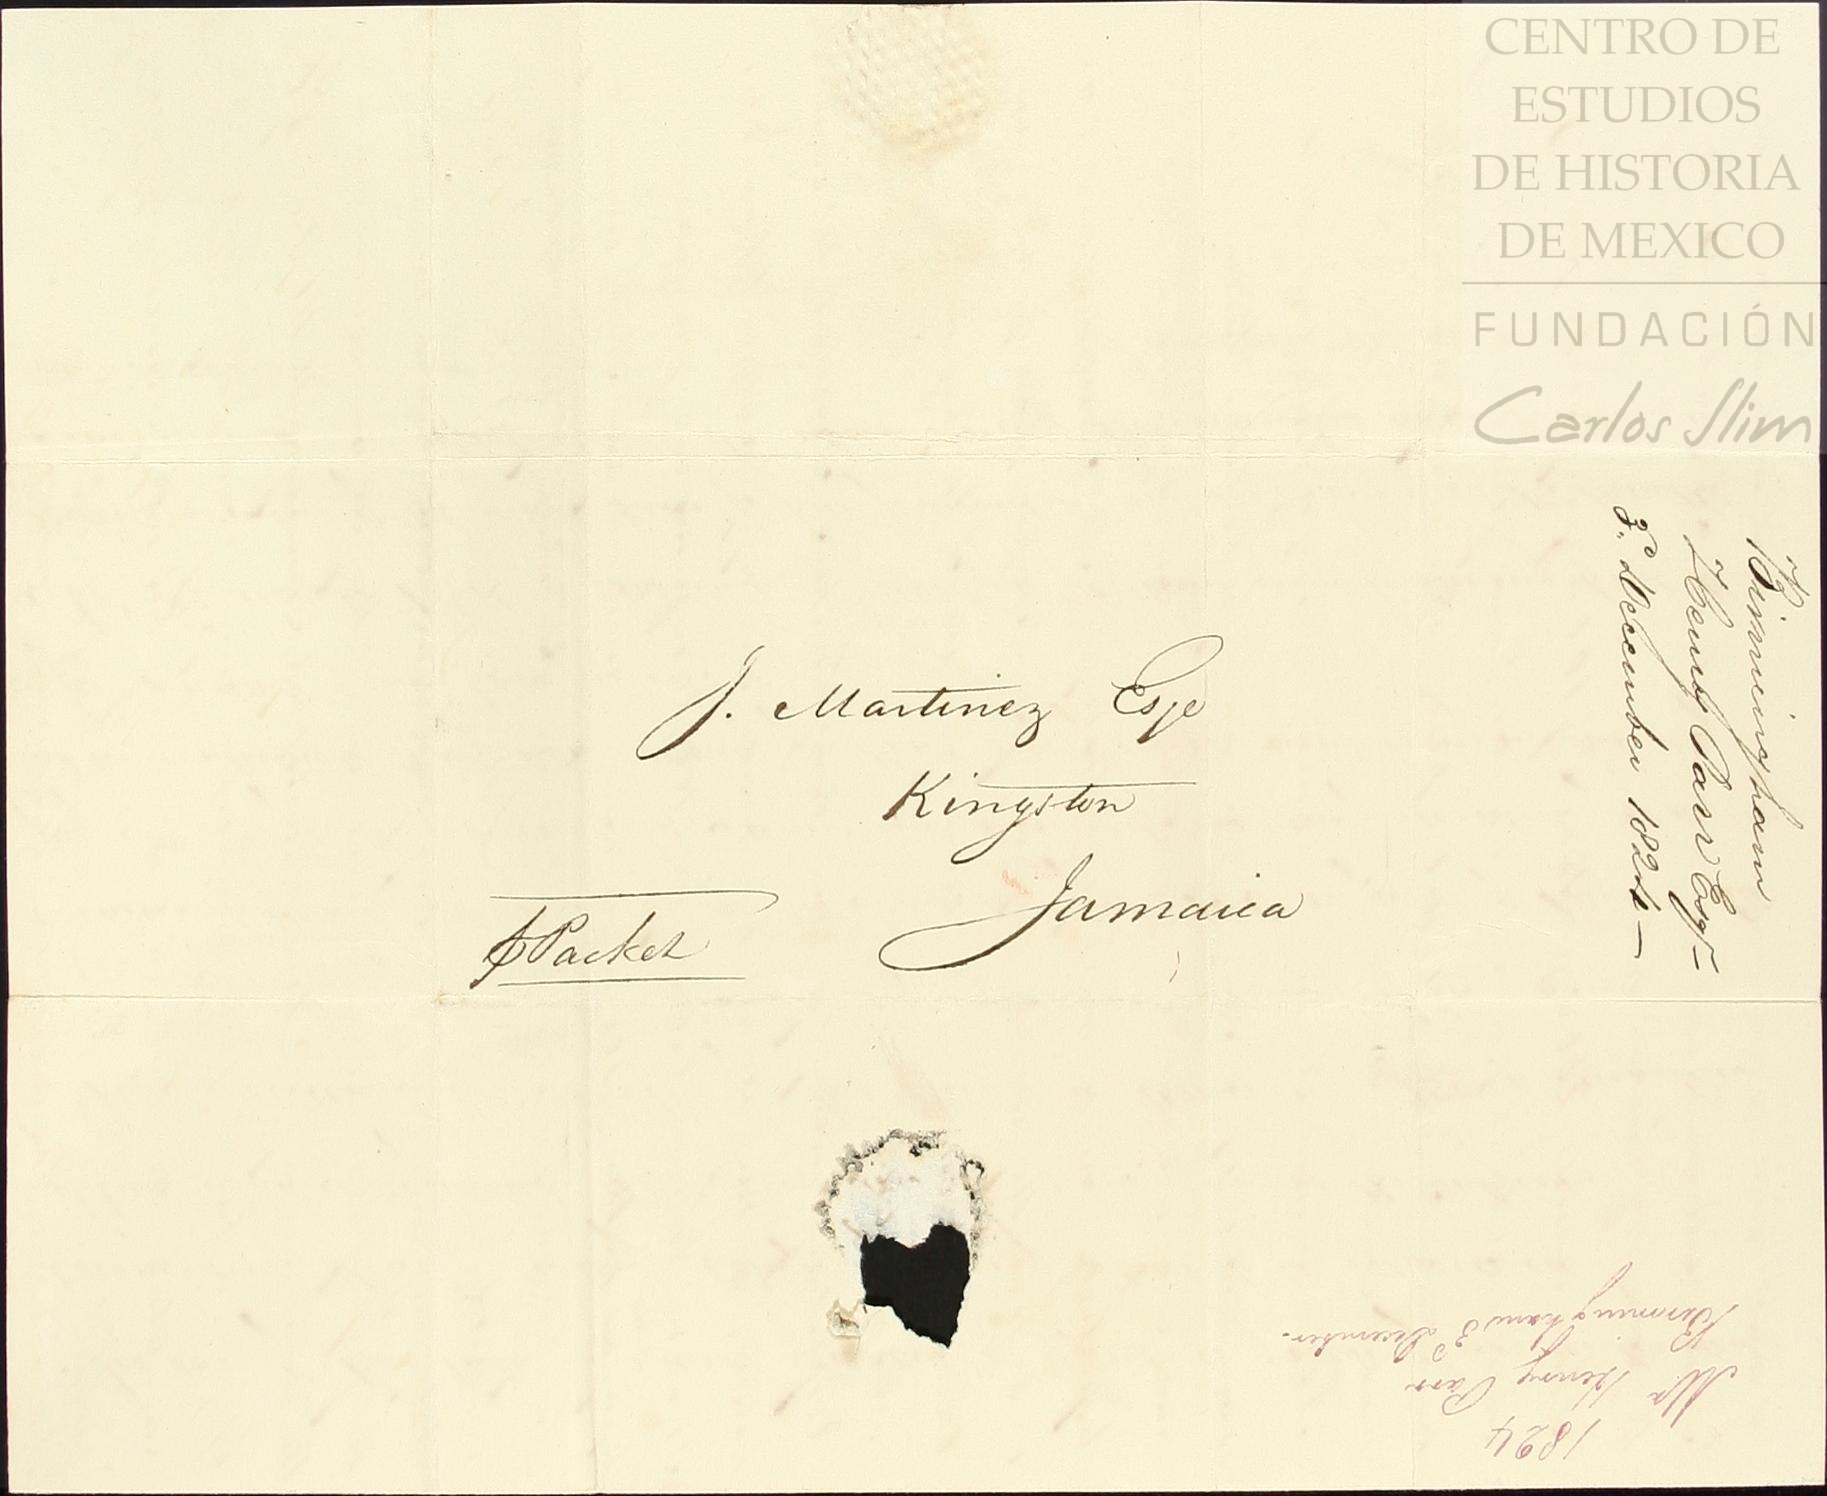 CENTRO DE
ESTUDIOS
DE HISTORIA
DE MEXICO
FUNDACIÓN
Carlos Slim
J. Martinez Esqe
Kingston
Jamaica
Packet
Birmingham
Henry Parr Esqr
3d December 1824
1824
Mr Henry Parr
Birmingham 3d December.